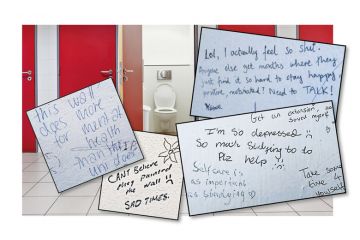 this wall
does more
for mental
health
than this
uni does
CAN'T Believe
they painted
the wall!!
SAD TIMES.
Lol, I actually feel so shit.
Anyone else get months where they
just find it so hard to stay happy,
positive, motivated? Need to TALK!
Get an extension, so
saved myself
I'm so depressed
So much studying to do
Plz help
Self care is
as important
as studying
Take some
time 4
yourself